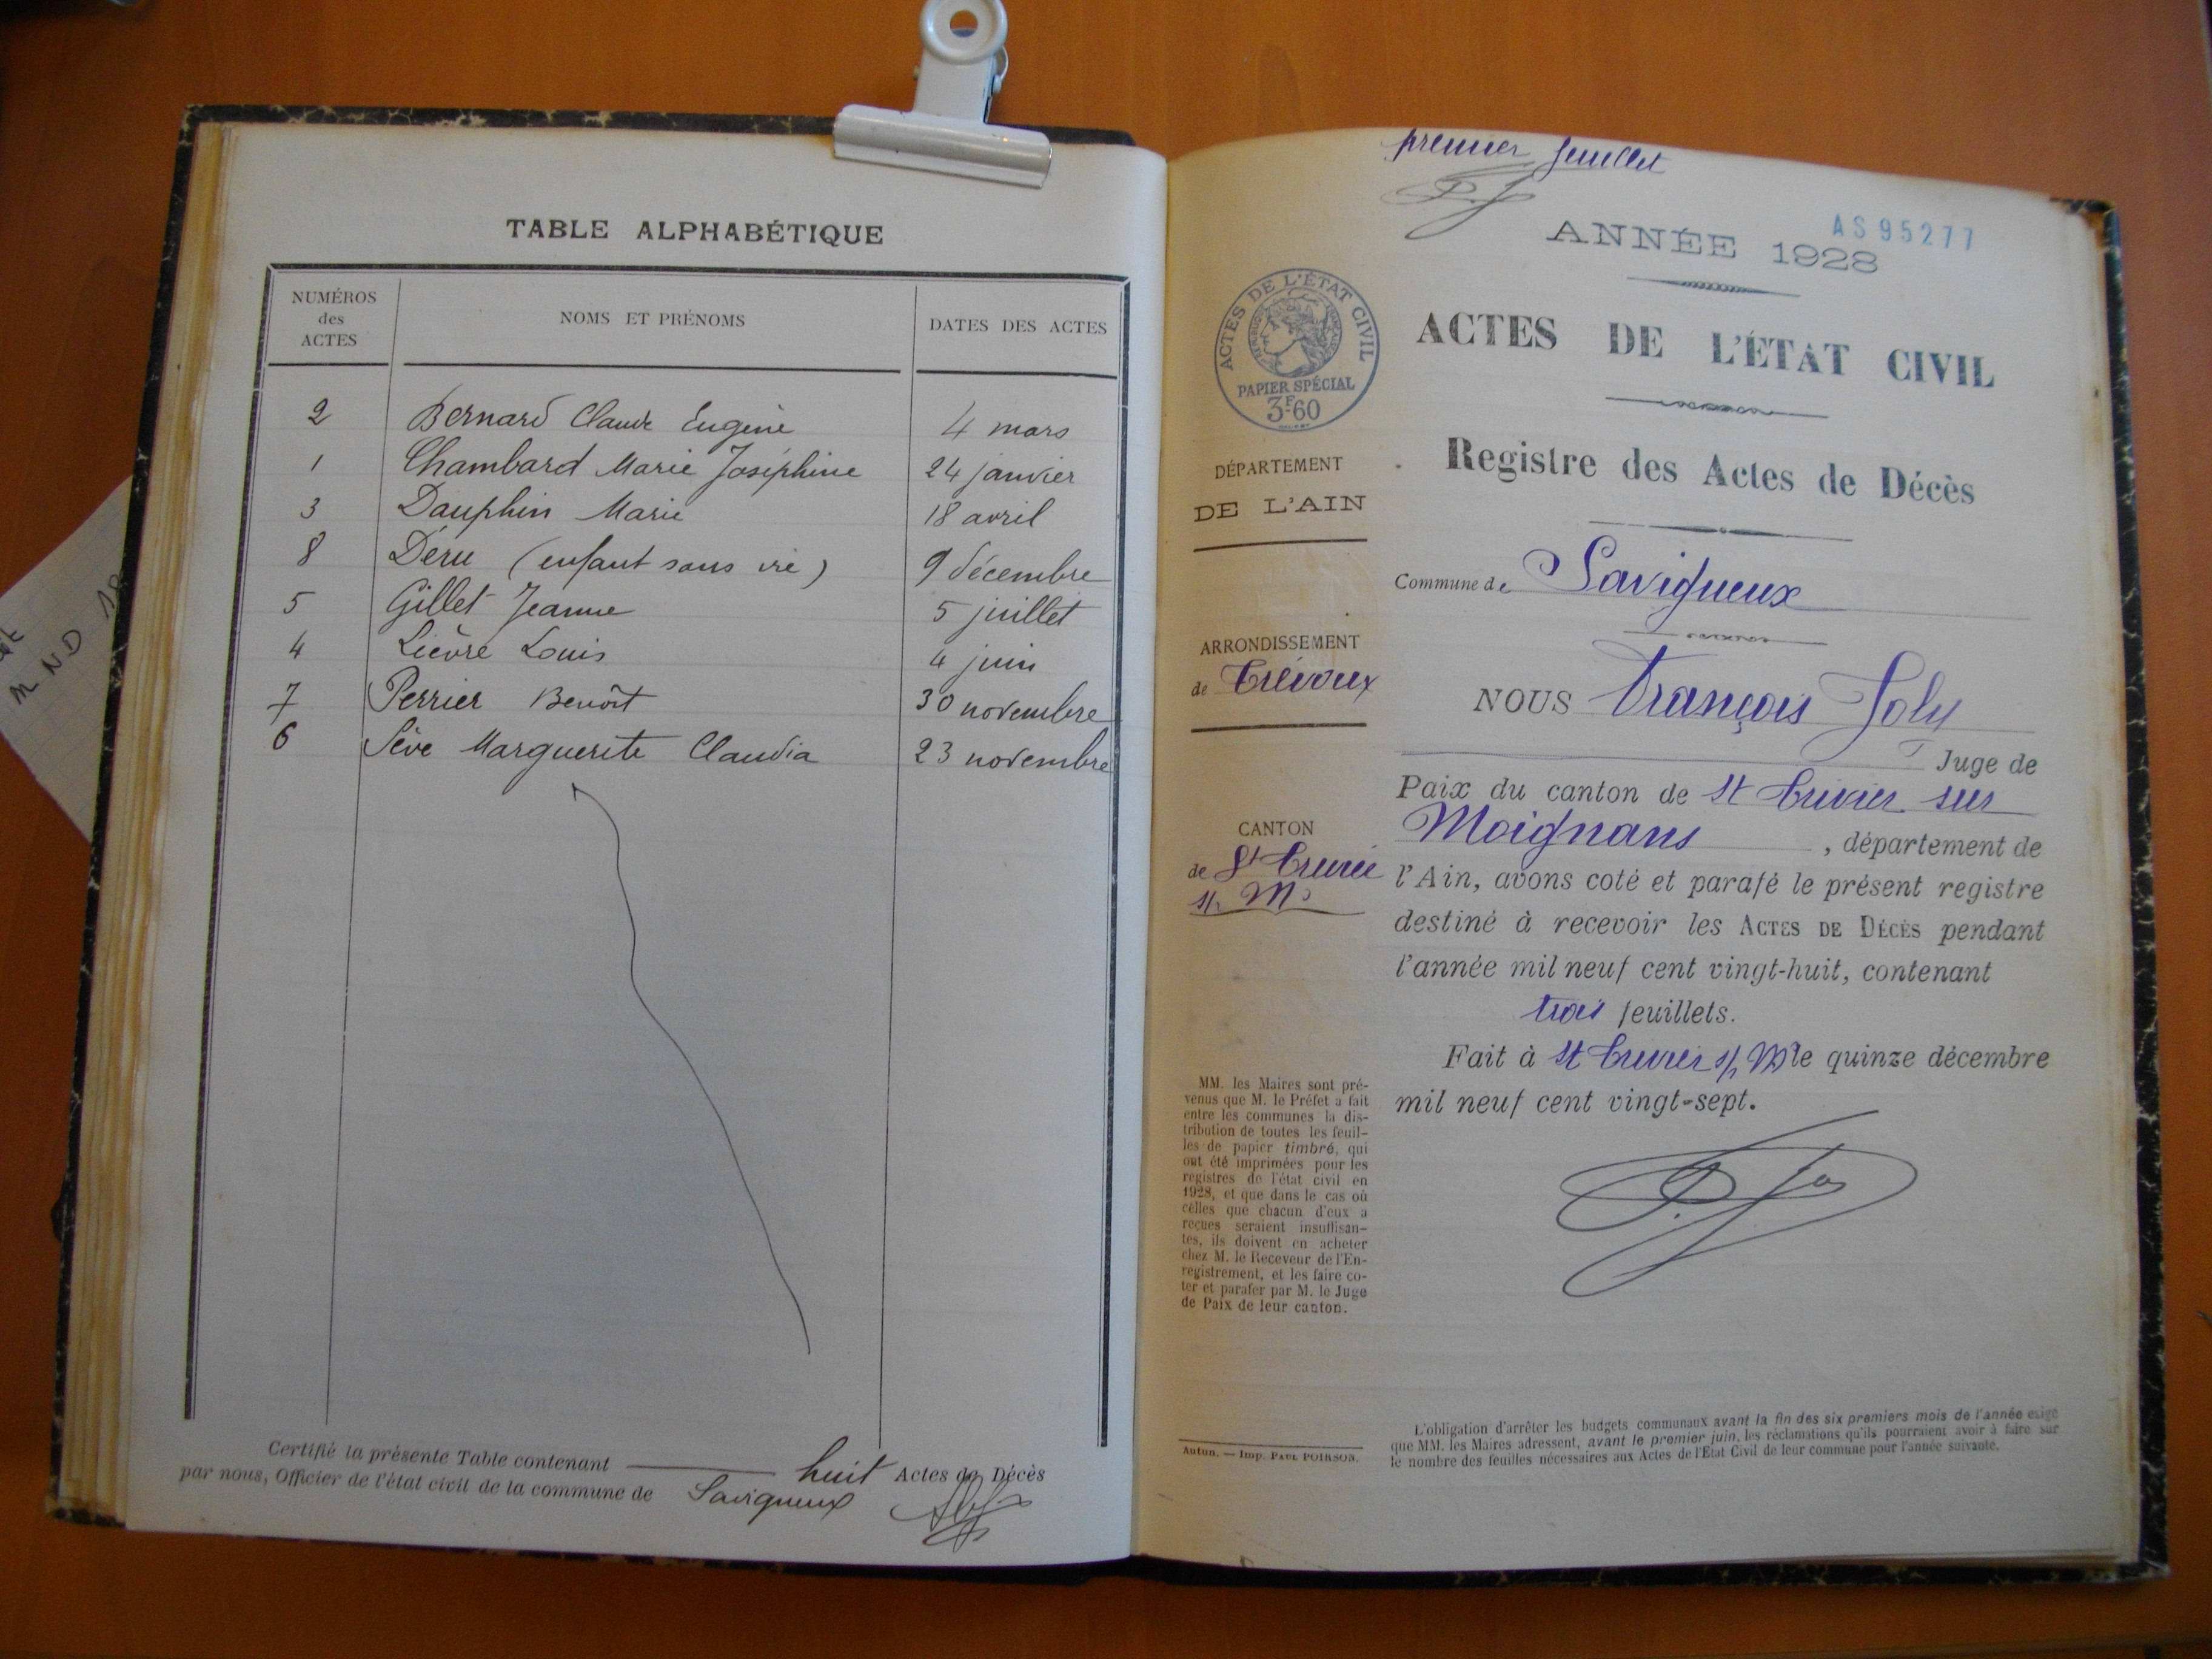 TABLE ALPHABÉTIQUE
NUMÉROS des ACTES NOMS ET PRÉNOMS DATES DES ACTES
2 Bernard Claude Eugène 4 mars
1 Chambard Marie Joséphine 24 janvier
3 Dauphin Marie 18 avril
8 Déru (enfant sans vie) 9 décembre
5 Gillet Jeanne 5 juillet
4 Lièvre Louis 4 juin
7 Perrier Benoît 30 novembre
6 Sève Marguerite Claudia 23 novembre
Certifié la présente Table contenant huit Actes de Décès
par nous, Officier de l'état civil de la commune de Savigneux
premier feuillet
AS95277
ANNÉE 1928
ACTES DE L'ÉTAT CIVIL
Registre des Actes de Décès
ACTES DE L'ÉTAT CIVIL
PAPIER SPÉCIAL
3F60
DÉPARTEMENT
DE L'AIN
ARRONDISSEMENT
de Trévoux
CANTON
de St Trivier
s/ M
MM. les Maires sont pré-
venus que M. le Préfet a fait
entre les communes la dis-
tribution de toutes les feuil-
les de papier timbré, qui
ont été imprimées pour les
registres de l'état civil en
1928, et que dans le cas où
celles que chacun d'eux a
reçues seraient insuffisan-
tes, ils doivent en acheter
chez M. le Receveur de l'En-
registrement, et les faire co-
ter et parafer par M. le Juge
de Paix de leur canton.
Autun. — Imp. PAUL POIRSON.
Commune de Savigneux
NOUS François Joly
Juge de
Paix du canton de St Trivier sur
Moignans, département de
l'Ain, avons coté et parafé le présent registre
destiné à recevoir les ACTES DE DÉCÈS pendant
l'année mil neuf cent vingt-huit, contenant
trois feuillets.
Fait à St Trivier s/ M le quinze décembre
mil neuf cent vingt-sept.
L'obligation d'arrêter les budgets communaux avant la fin des six premiers mois de l'année exige
que MM. les Maires adressent, avant le premier juin, les réclamations qu'ils pourraient avoir à faire sur
le nombre des feuilles nécessaires aux Actes de l'Etat Civil de leur commune pour l'année suivante.